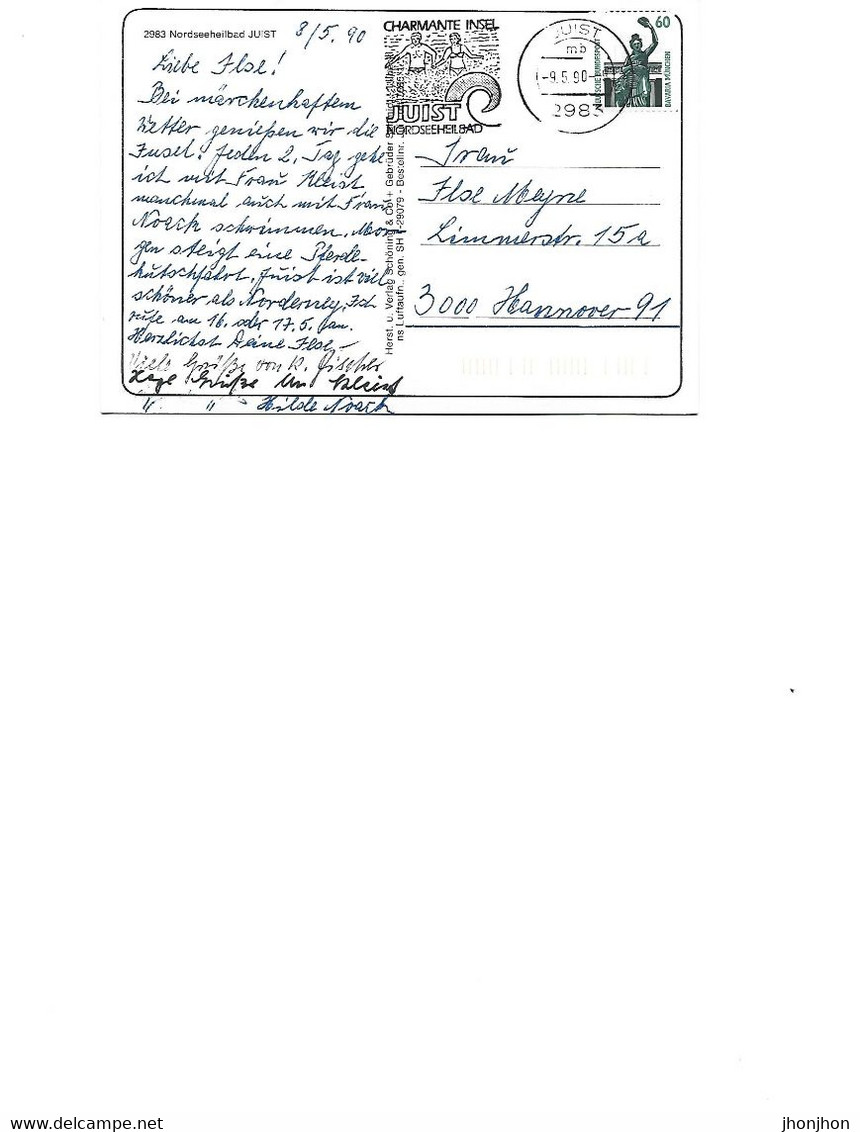 2983 Nordseeheilbad JUIST
8/5. 90
Liebe Ilse!
Bei märchenhaftem
Wetter genießen wir die
Insel. Jeden 2. Tag gehe
ich mit Frau Kleist
manchmal auch mit Frau
Noack schwimmen. Mor-
gen steigt eine Pferde-
kutschfahrt. Juist ist viel
schöner als Norderney. Ich
rufe am 16. oder 17.5. an.
Herzlichst Deine Ilse
Viele Grüße von K. Fischer
Grüße Kleist
" " Hilde Noack
Herst. u. Verlag Schöning & Co + Gebrüder
ns Luftaufn., gen. SH -29079 - Bestellnr.
CHARMANTE INSEL
JUIST
NORDSEEHEILBAD
JUIST
mb
-9.5.90-
2983
60
DEUTSCHE BUNDESPOST
BAVARIA MÜNCHEN
Frau
Ilse Meyne
Limmerstr. 15a
3000 Hannover 91
jhonjhon